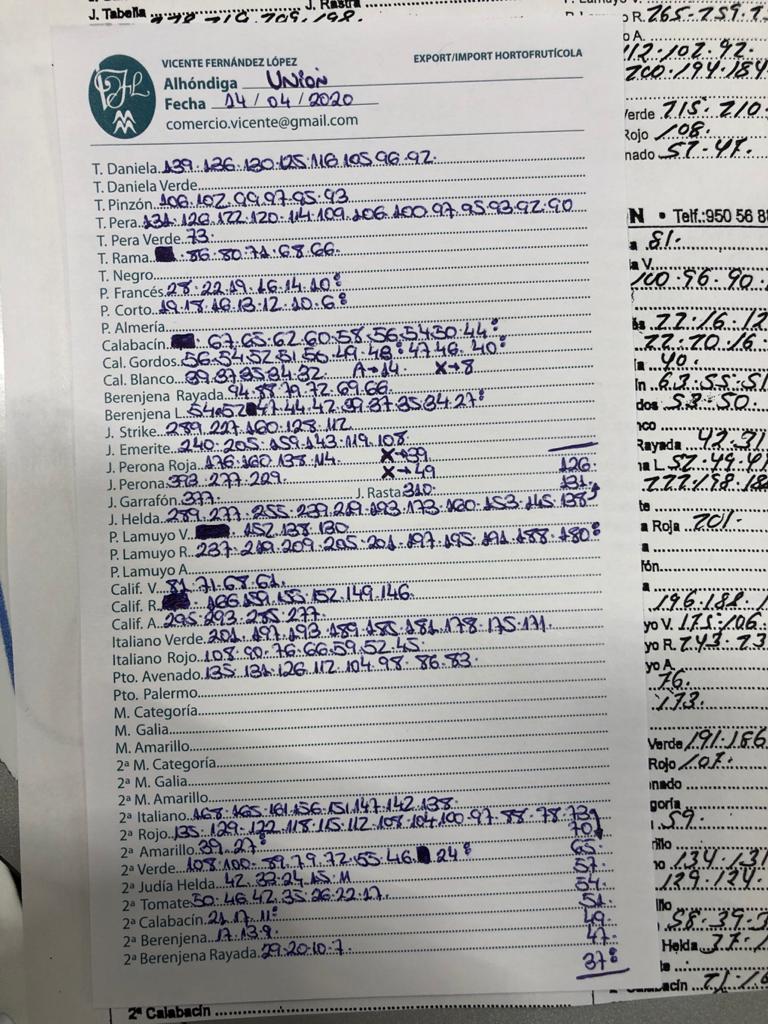 J. Tabella J. Rastra
VICENTE FERNÁNDEZ LÓPEZ EXPORT/IMPORT HORTOFRUTÍCOLA
Alhóndiga UNION
Fecha 14/04/2020
comercio.vicente@gmail.com
T. Daniela 139·136·130·125·116·105·96·92·
T. Daniela Verde
T. Pinzón 106·102·99·97·95·93
T. Pera 131·126·122·120·114·109·106·100·97·95·93·92·90
T. Pera Verde 73·
T. Rama 86·80·71·68·66·
T. Negro
P. Francés 28·22·19·16·14·10:
P. Corto 19·18·16·13·12·10·6:
P. Almería
Calabacín 67·65·62·60·58·56·54·50·44:
Cal. Gordos 56·54·52·51·50·49·48:47·46·40:
Cal. Blanco 39·37·35·34·32· A→14· X→8
Berenjena Rayada 94·88·79·72·69·66·
Berenjena L. 54·52 47·44·42·39·37·35·34·27:
J. Strike 289·227·160·128·112
J. Emerite 240·205·159·143·119·108·
J. Perona Roja 176·160·138·114· X→39
J. Perona 393·277·229· X→49 126·
J. Garrafón 377 J. Rasta 310· 131·
J. Helda 289·277·255·239·219·193·173·160·153·145·138
P. Lamuyo V. 152·138·130·
P. Lamuyo R. 237·219·209·205·201·197·195·191·188·180:
P. Lamuyo A.
Calif. V. 81·71·68·61·
Calif. R. 166·159·155·152·149·146·
Calif. A. 295·293·285·277·
Italiano Verde 201·197·193·189·185·181·178·175·171·
Italiano Rojo 108·90·76·66·59·52·45·
Pto. Avenado 135·131·126·112·104·98·86·83·
Pto. Palermo
M. Categoría
M. Galia
M. Amarillo
2ª M. Categoría
2ª M. Galia
2ª M. Amarillo
2ª Italiano 168·165·161·156·151·147·142·138·
2ª Rojo 135·129·122·118·115·112·108·104·100·97·88·78·73
2ª Amarillo 39·27: 70
2ª Verde 108·100·89·79·72·55·46· 24: 65·
2ª Judía Helda 42·33·24·15·11 57·
2ª Tomate 50·46·42·35·26·22·17· 54·
2ª Calabacín 21·17·11: 51·
2ª Berenjena 17·13·9· 49·
2ª Berenjena Rayada 29·20·10·7· 47·
37:
2ª Calabacín
112·102·92·
200·194·184
erde 215·210
Rojo 108·
nado 57·47·
N • Telf.:950 56 8
81·
100·96·90·
22·16·12
22·20·16·
40·
63·55·51
dos 53·50·
nco
Rayada 42·31
na L. 52·49·4
222·198·18
a Roja 201·
fón
196·188·1
yo V. 175·106·
yo R. 243·23
yo A.
76·
173·
Verde 191·186
Rojo 107·
nado
goría
59·
rillo
134·131
129·124·
58·39·3
Helda 37·1
acín 21·16